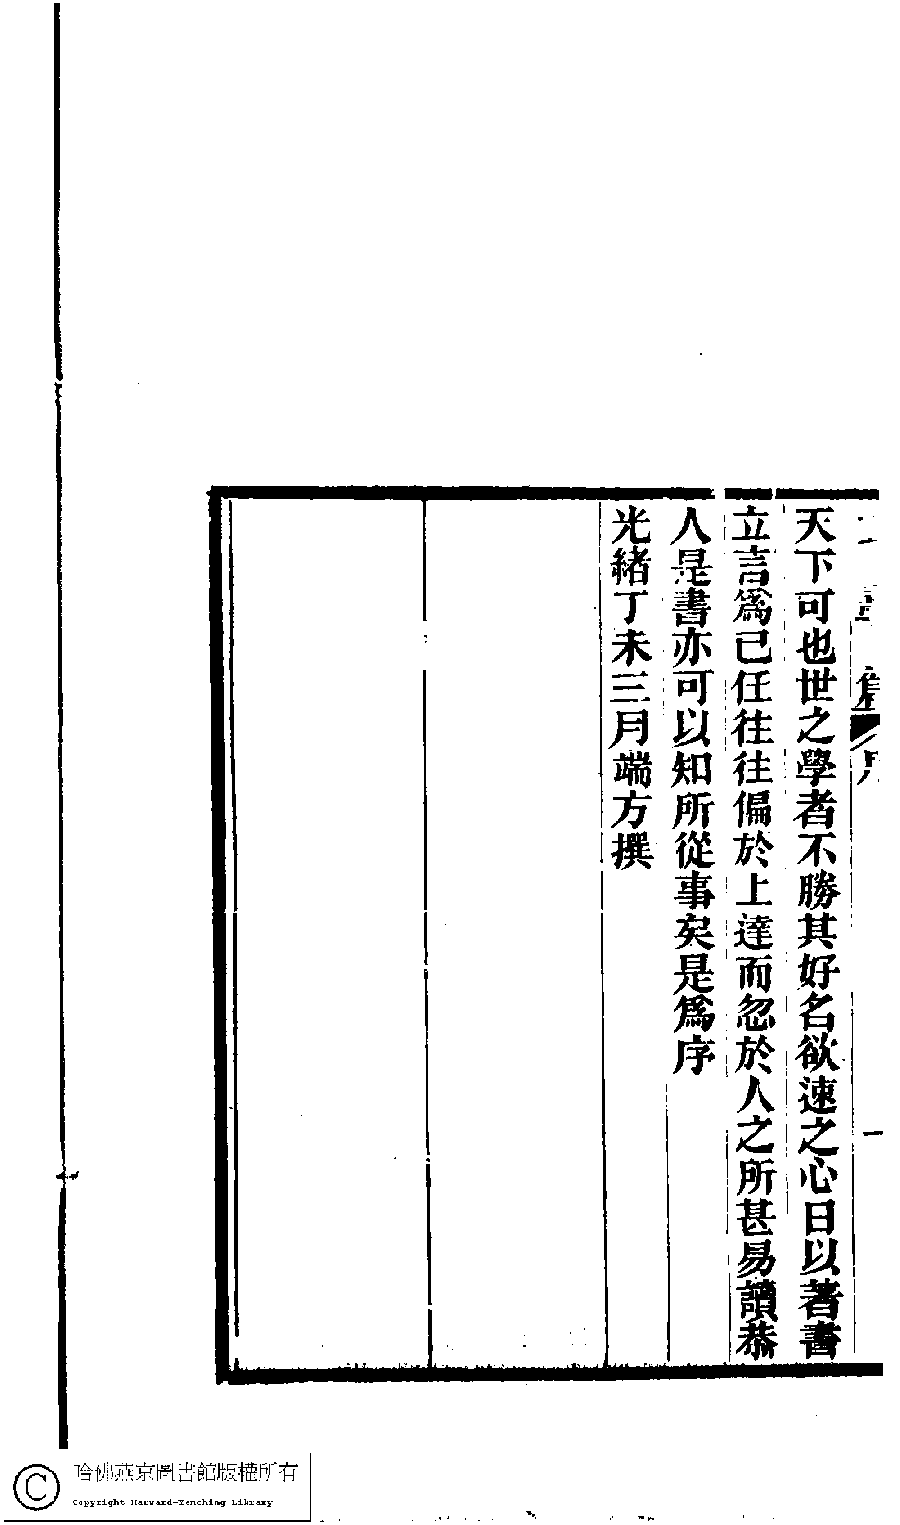 天下可也世之學者不勝其好名欲速之心日以著書
立言爲己任往往偏於上達而忽於人之所甚易讀恭
人是書亦可以知所從事矣是爲序
光緒丁未三月端方撰
哈佛燕京圖書館版權所有
Copyright Harvard-Yenching Library